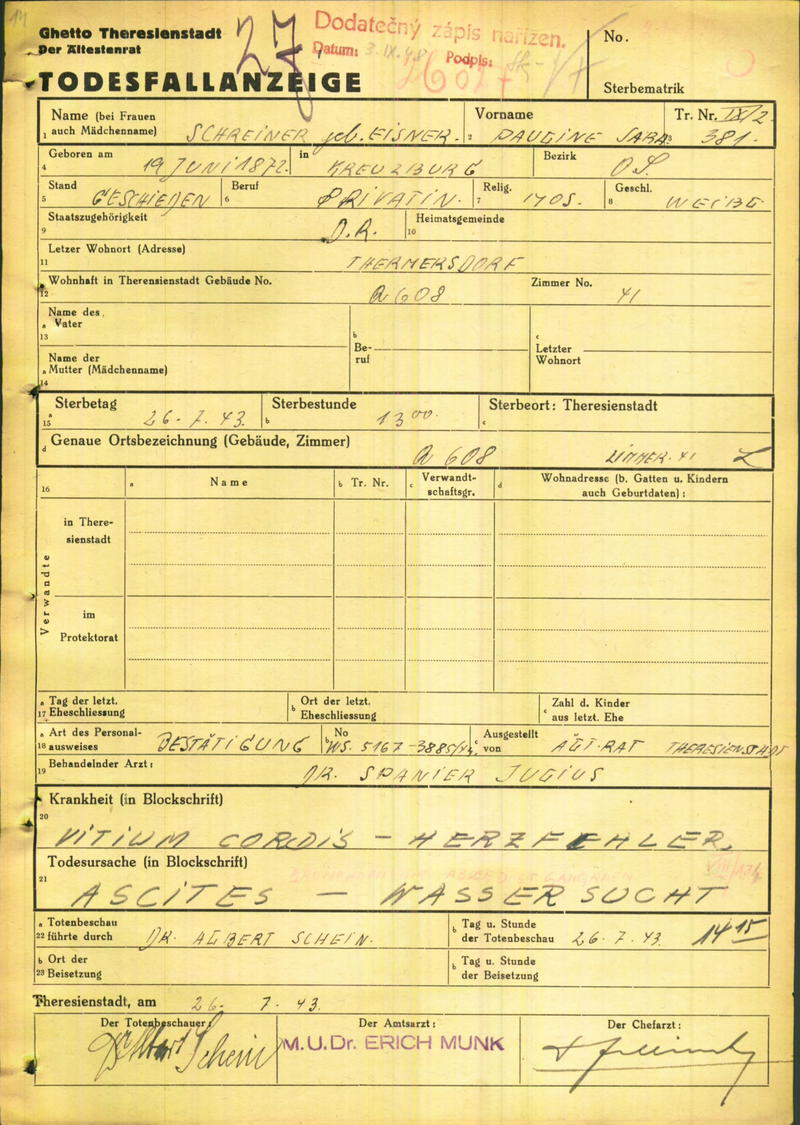 14
Ghetto Theresienstadt
Der Ältestenrat
27
Dodatečný zápis nařízen.
Datum: 3. IX. 48 Podpis:
No.
TODESFALLANZEIGE
Sterbematrik
Name (bei Frauen auch Mädchenname) Vorname Tr. Nr. IX/2
1 SCHREINER geb. EISNER. 2 PAULINE SARA 3 381.
Geboren am in Bezirk
4 19 JUNI 1872. KREUZBURG O.S.
Stand Beruf Relig. Geschl.
5 GESCHIEDEN 6 PRIVATIN. 7 MOS. 8 WEIBL.
Staatszugehörigkeit Heimatsgemeinde
9 D.R. 10
Letzer Wohnort (Adresse)
11 THERMERSDORF
Wohnhaft in Theresienstadt Gebäude No. Zimmer No.
12 Q 608 41
Name des
a Vater
13
b Beruf
c Letzter Wohnort
Name der
a Mutter (Mädchenname)
14
Sterbetag Sterbestunde Sterbeort: Theresienstadt
a 15 26. 7. 43. b 13 00. c
d Genaue Ortsbezeichnung (Gebäude, Zimmer)
Q 608 ZIMMER. 41
16 a Name b Tr. Nr. c Verwandtschaftsgr. d Wohnadresse (b. Gatten u. Kindern auch Geburtdaten):
Verwandte
in Theresienstadt
im Protektorat
a Tag der letzt. b Ort der letzt. c Zahl d. Kinder
17 Eheschliessung Eheschliessung aus letzt. Ehe
a Art des Personal- b No c Ausgestellt
18 ausweises BESTÄTIGUNG WS. 5167-3885/ von ÄLT.RAT THERESIENSTADT
Behandelnder Arzt:
19 DR. SPANIER JULIUS
Krankheit (in Blockschrift)
20
VITIUM CORDIS - HERZFEHLER.
Todesursache (in Blockschrift)
21
ASCITES - WASSERSUCHT
a Totenbeschau b Tag u. Stunde
22 führte durch DR. ALBERT SCHEIN. der Totenbeschau 26. 7. 43. 14 15
b Ort der b Tag u. Stunde
23 Beisetzung der Beisetzung
Theresienstadt, am 26. 7. 43.
Der Totenbeschauer: Der Amtsarzt: Der Chefarzt:
Dr Albert Schein M.U.Dr. ERICH MUNK